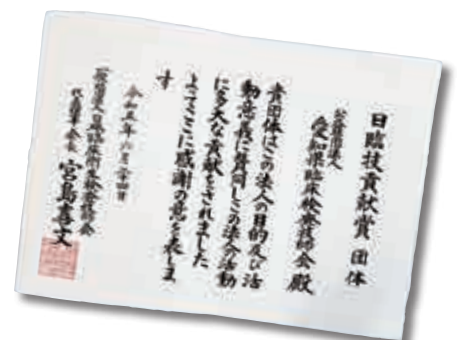 日臨技貢献賞 団体
公益社団法人
愛知県臨床検査技師会 殿
貴団体はこの法人の目的及び活
動意義に賛同しこの法人の活動
に多大な貢献をされました
よってここに感謝の意を表しま
す
令和五年六月二十四日
一般社団法人日本臨床衛生検査技師会
代表理事会長 宮島喜文